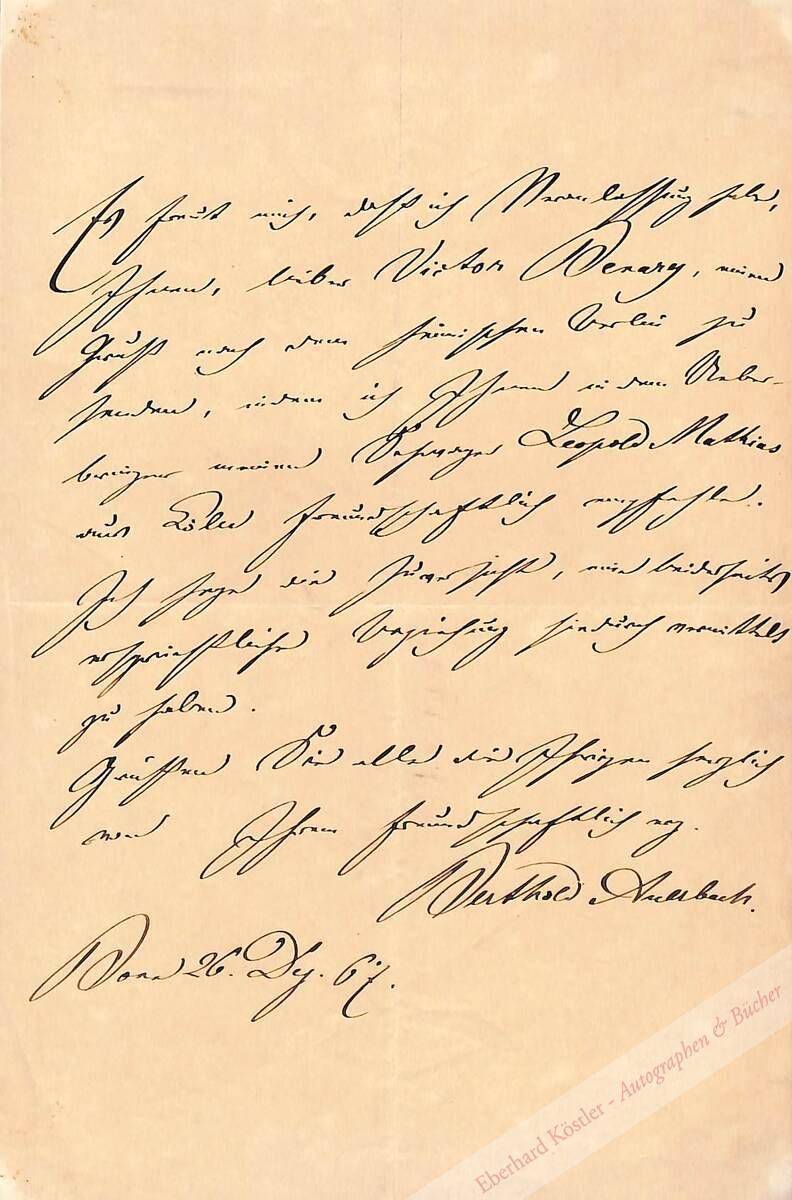 Es freut mich, daß ich Veranlassung habe,
Ihnen, lieber Victor Benary, einen
Gruß nach dem heimischen Berlin zu
senden, indem ich Ihnen in dem Ueber-
bringer meinen Schwager Leopold Mathias
aus Köln freundschaftlich empfehle.
Ich hege die Zuversicht, eine beiderseits
ersprießliche Beziehung hiedurch vermittelt
zu haben.
Grüßen Sie alle die Ihrigen herzlich
von Ihrem freundschaftlich erg.
Berthold Auerbach.
Bonn 26. Dez. 67.
Eberhard Köstler - Autographen & Bücher